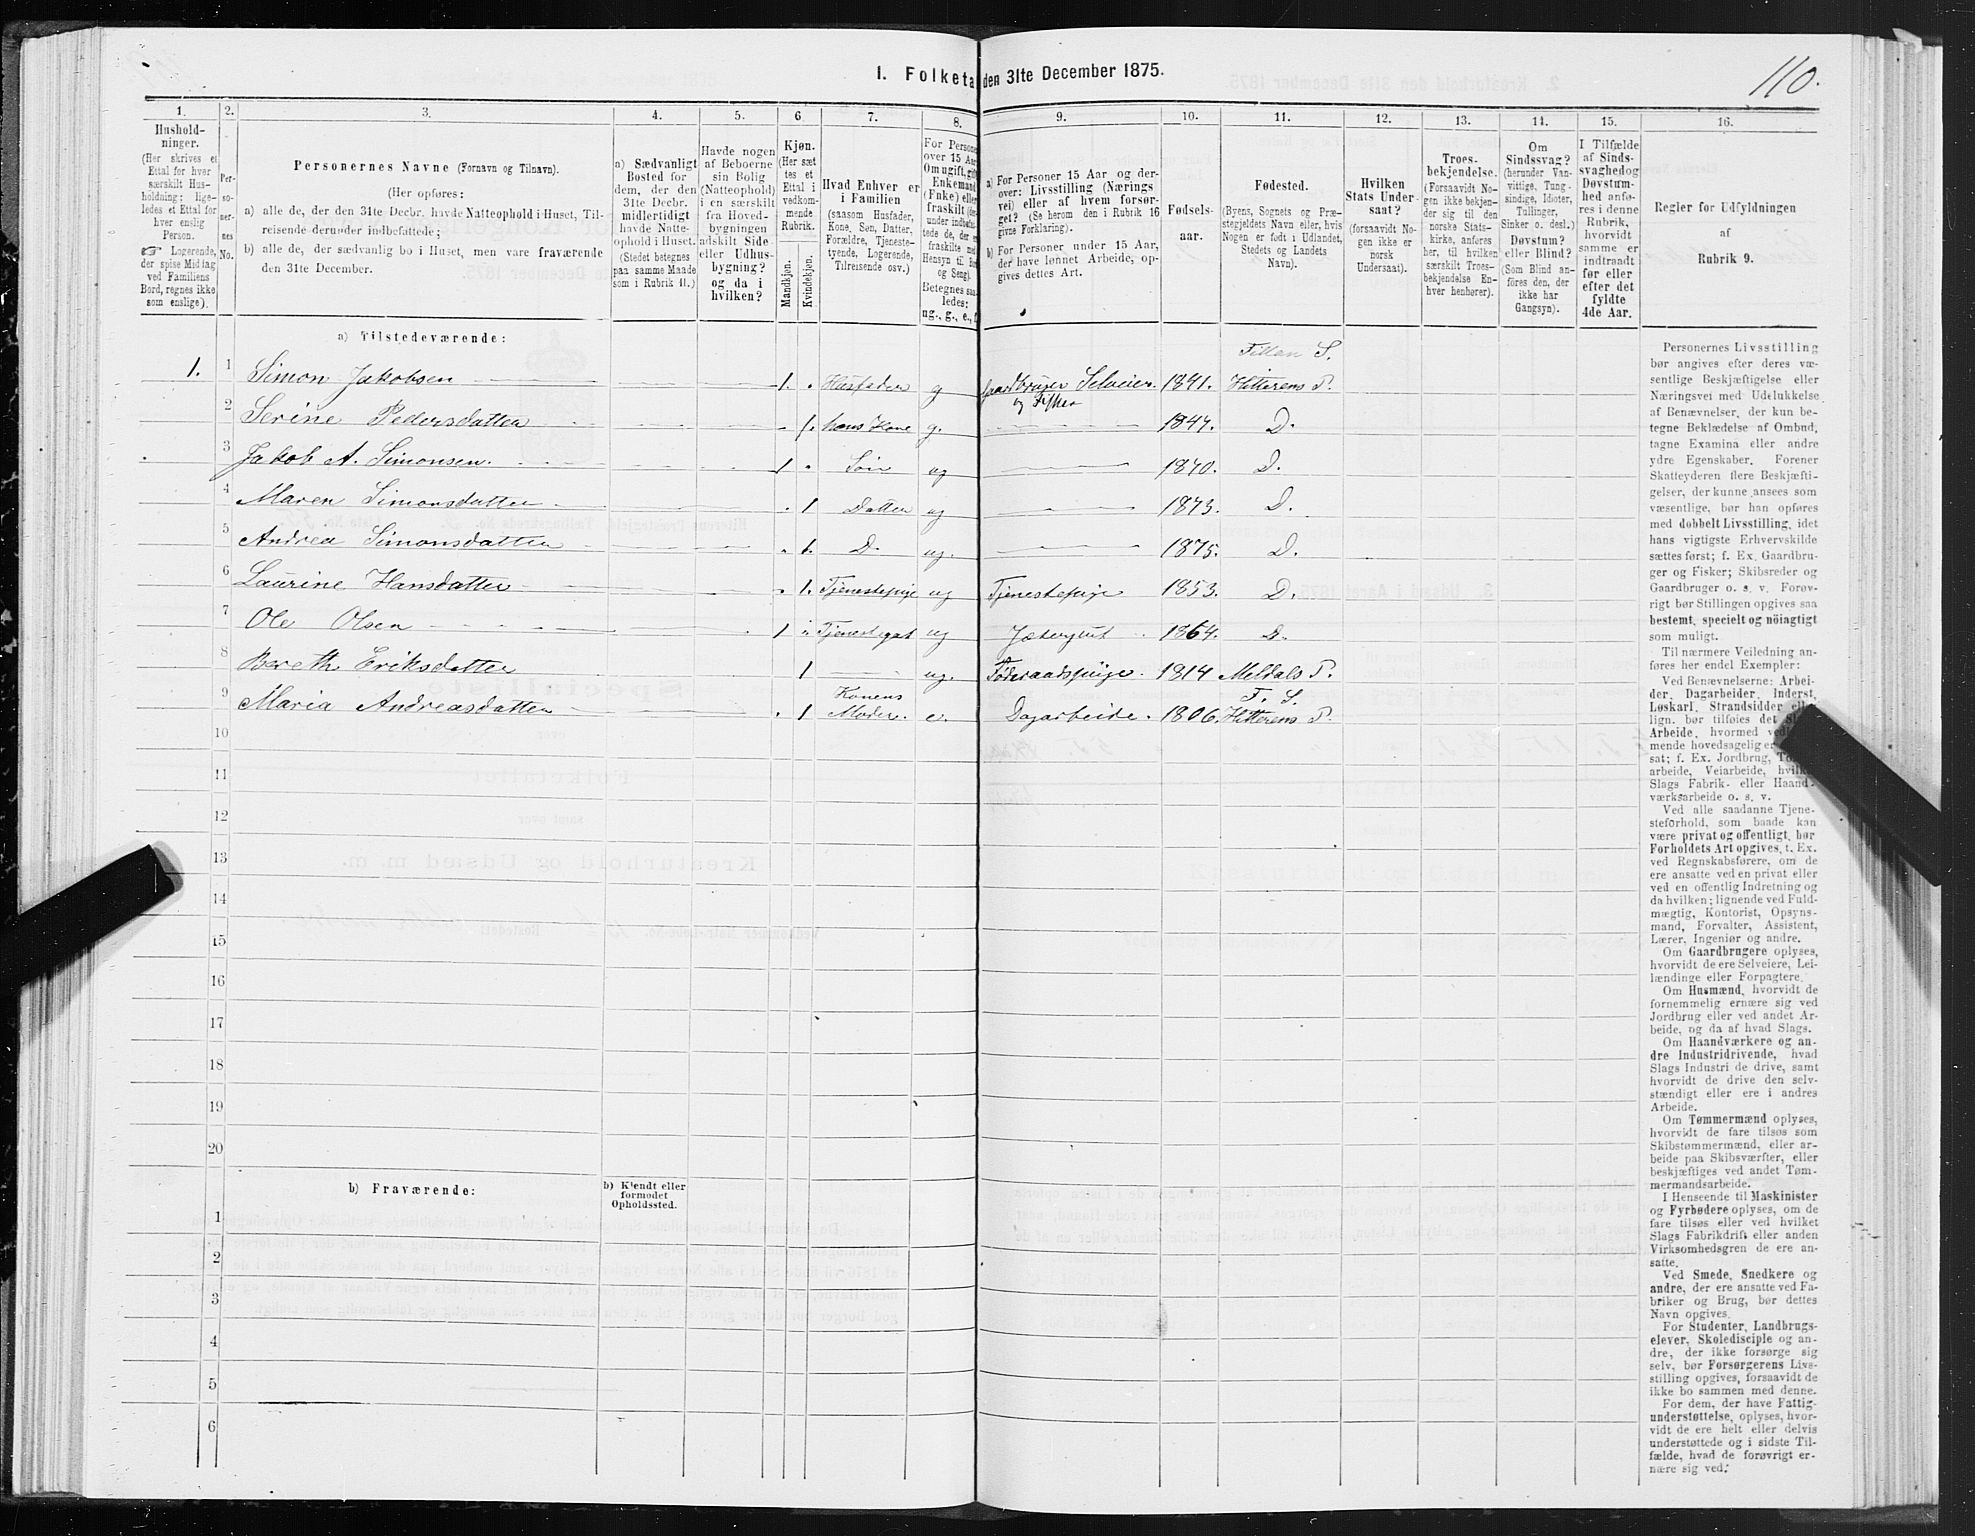 1. Folketal den 31te December 1875.
110.
1. 2. 3. 4. 5. 6 7. 8. 9. 10. 11. 12. 13. 14. 15. 16.
Hushold-
ninger.
(Her skrives et
Ettal for hver
særskilt Hus-
holdning; lige-
ledes et Ettal for
hver enslig
Person.
Logerende,
der spise Middag
ved Familiens
Bord, regnes ikke
som enslige).
Per-
so-
ner-
nes
No.
Personernes Navne (Fornavn og Tilnavn).
(Her opføres:
a) alle de, der den 31te Decbr. havde Natteophold i Huset, Til-
reisende derunder indbefattede;
b) alle de, der sædvanlig bo i Huset, men vare fraværende
den 31te December.
a) Sædvanligt
Bosted for
dem, der den
31te Decbr.
midlertidigt
havde Natte-
ophold i Huset.
(Stedet betegnes
paa samme Maade
som i Rubrik 11.)
Havde nogen
af Beboerne
sin Bolig
(Natteophold)
i en særskilt
fra Hoved-
bygningen
adskilt Side-
eller Udhus-
bygning?
og da i
hvilken?
Kjøn.
(Her sæt-
tes et
Ettal i
vedkom-
mende
Rubrik.)
Mandkjøn.
Kvindekjøn.
Hvad Enhver er
i Familien
(saasom Husfader,
Kone, Søn, Datter,
Forældre, Tjeneste-
tyende, Logerende,
Tilreisende osv.)
a) For Personer 15 Aar og der-
over: Livsstilling (Nærings-
vei) eller af hvem forsør-
get? (Se herom den i Rubrik 16
givne Forklaring).
b) For Personer under 15 Aar,
der have lønnet Arbeide, op-
gives dettes Art.
Fødsels-
aar.
Fødested.
(Byens, Sognets og Præ-
stegjeldets Navn eller, hvis
Nogen er født i Udlandet,
Stedets og Landets
Navn).
Hvilken
Stats Under-
saat?
(forsaavidt No-
gen ikke er
norsk
Undersaat).
Troes-
bekjendelse.
(Forsaavidt No-
gen ikke bekjen-
der sig til den
norske Stats-
kirke, anføres
her, til hvilken
særskilt Troes-
bekjendelse En-
hver henhører).
Om
Sindssvag?
(herunder Van-
vittige, Tung-
sindige, Idioter,
Tullinger,
Sinker o. desl.)
Døvstum?
eller Blind?
(Som Blind an-
føres den, der
ikke har
Gangsyn).
I Tilfælde
af Sinds-
svaghed og
Døvstum-
hed anfø-
res i denne
Rubrik,
hvorvidt
samme er
indtraadt
før eller
efter det
fyldte
4de Aar.
Regler for Udfyldningen
af
Rubrik 9.
a) Tilstedeværende:
Fillan S.
1. 1 Simon Jakobsen 1. Husfader g Gaardbruger Selveier 1841. Hitterens P.
og Fisker
2 Serine Pedersdatter 1. hans Kone g. 1847. D.
3 Jakob A. Simonsen. 1 Søn ug 1870. D.
4 Maren Simonsdatter 1 Datter ug 1873. D.
5 Andrea Simonsdatter 1. D. ug. 1875. D.
6 Laurine Hansdatter 1. Tjenestepige ug Tjenestepige 1853. D.
7 Ole Olsen 1 Tjenestegut ug Jætergut 1864. D.
8 Bereth Eriksdatter 1 ug. Føderaadspige. 1814 Meldals P.
9 Maria Andreasdatter 1 Konens Moder. e. Dagarbeide. 1806. F. S. Hitterens P.
10
11
12
13
14
15
16
17
18
19
20
b) Fraværende:
b) Kjendt eller
formodet
Opholdssted.
1
2
3
4
5
6
Personernes Livsstilling
bør angives efter deres væ-
sentlige Beskjæftigelse eller
Næringsvei med Udelukkelse
af Benævnelser, der kun be-
tegne Beklædelse af Ombud,
tagne Examina eller andre
ydre Egenskaber. Forener
Skatteyderen flere Beskjæfti-
gelser, der kunne ansees som
væsentlige, bør han opføres
med dobbelt Livsstilling, idet
hans vigtigste Erhvervskilde
sættes først; f. Ex. Gaardbru-
ger og Fisker; Skibsreder og
Gaardbruger o. s. v. Forøv-
rigt bør Stillingen opgives saa
bestemt, specielt og nöiagtigt
som muligt.
Til nærmere Veiledning an-
føres her endel Exempler:
Ved Benævnelserne: Arbei-
der, Dagarbeider, Inderst,
Løskarl, Strandsidder eller
lign. bør tilføies det
Arbeide, hvormed
mende hovedsagelig er
sat; f. Ex. Jordbrug,
arbeide, Veiarbeide,
Slags Fabrik- eller Haand-
værksarbeide o. s. v.
Ved alle saadanne Tjene-
steforhold, som baade kan
være privat og offentligt, bør
Forholdets Art opgives, f. Ex.
ved Regnskabsførere, om de
ere ansatte ved en privat eller
ved en offentlig Indretning og
da hvilken; lignende ved Fuld-
mægtig, Kontorist, Opsyns-
mand, Forvalter, Assistent,
Lærer, Ingeniør og andre.
Om Gaardbrugere oplyses,
hvorvidt de ere Selveiere, Lei-
lændinge eller Forpagtere.
Om Husmænd, hvorvidt de
fornemmelig ernære sig ved
Jordbrug eller ved andet Ar-
beide, og da af hvad Slags.
Om Haandværkere og an-
dre Industridrivende, hvad
Slags Industri de drive, samt
hvorvidt de drive den selv-
stændigt eller ere i andres
Arbeide.
Om Tømmermænd oplyses,
hvorvidt de fare tilsøs som
Skibstømmermænd, eller ar-
beide paa Skibsværfter, eller
beskjæftiges ved andet Tøm-
mermandsarbeide.
I Henseende til Maskinister
og Fyrbødere oplyses, om de
fare tilsøs eller ved hvilket
Slags Fabrikdrift eller anden
Virksomhedsgren de ere an-
satte.
Ved Smede, Snedkere og
andre, der ere ansatte ved Fa-
briker og Brug, bør dettes
Navn opgives.
For Studenter, Landbrugs-
elever, Skoledisciple og an-
dre, der ikke forsørge sig
selv, bør Forsørgerens Livs-
stilling opgives, forsaavidt de
ikke bo sammen med denne.
For dem, der have Fattig-
understøttelse, oplyses, hvor-
vidt de ere helt eller delvis
understøttede og i sidste Til-
fælde, hvad de forøvrigt er-
nære sig ved.